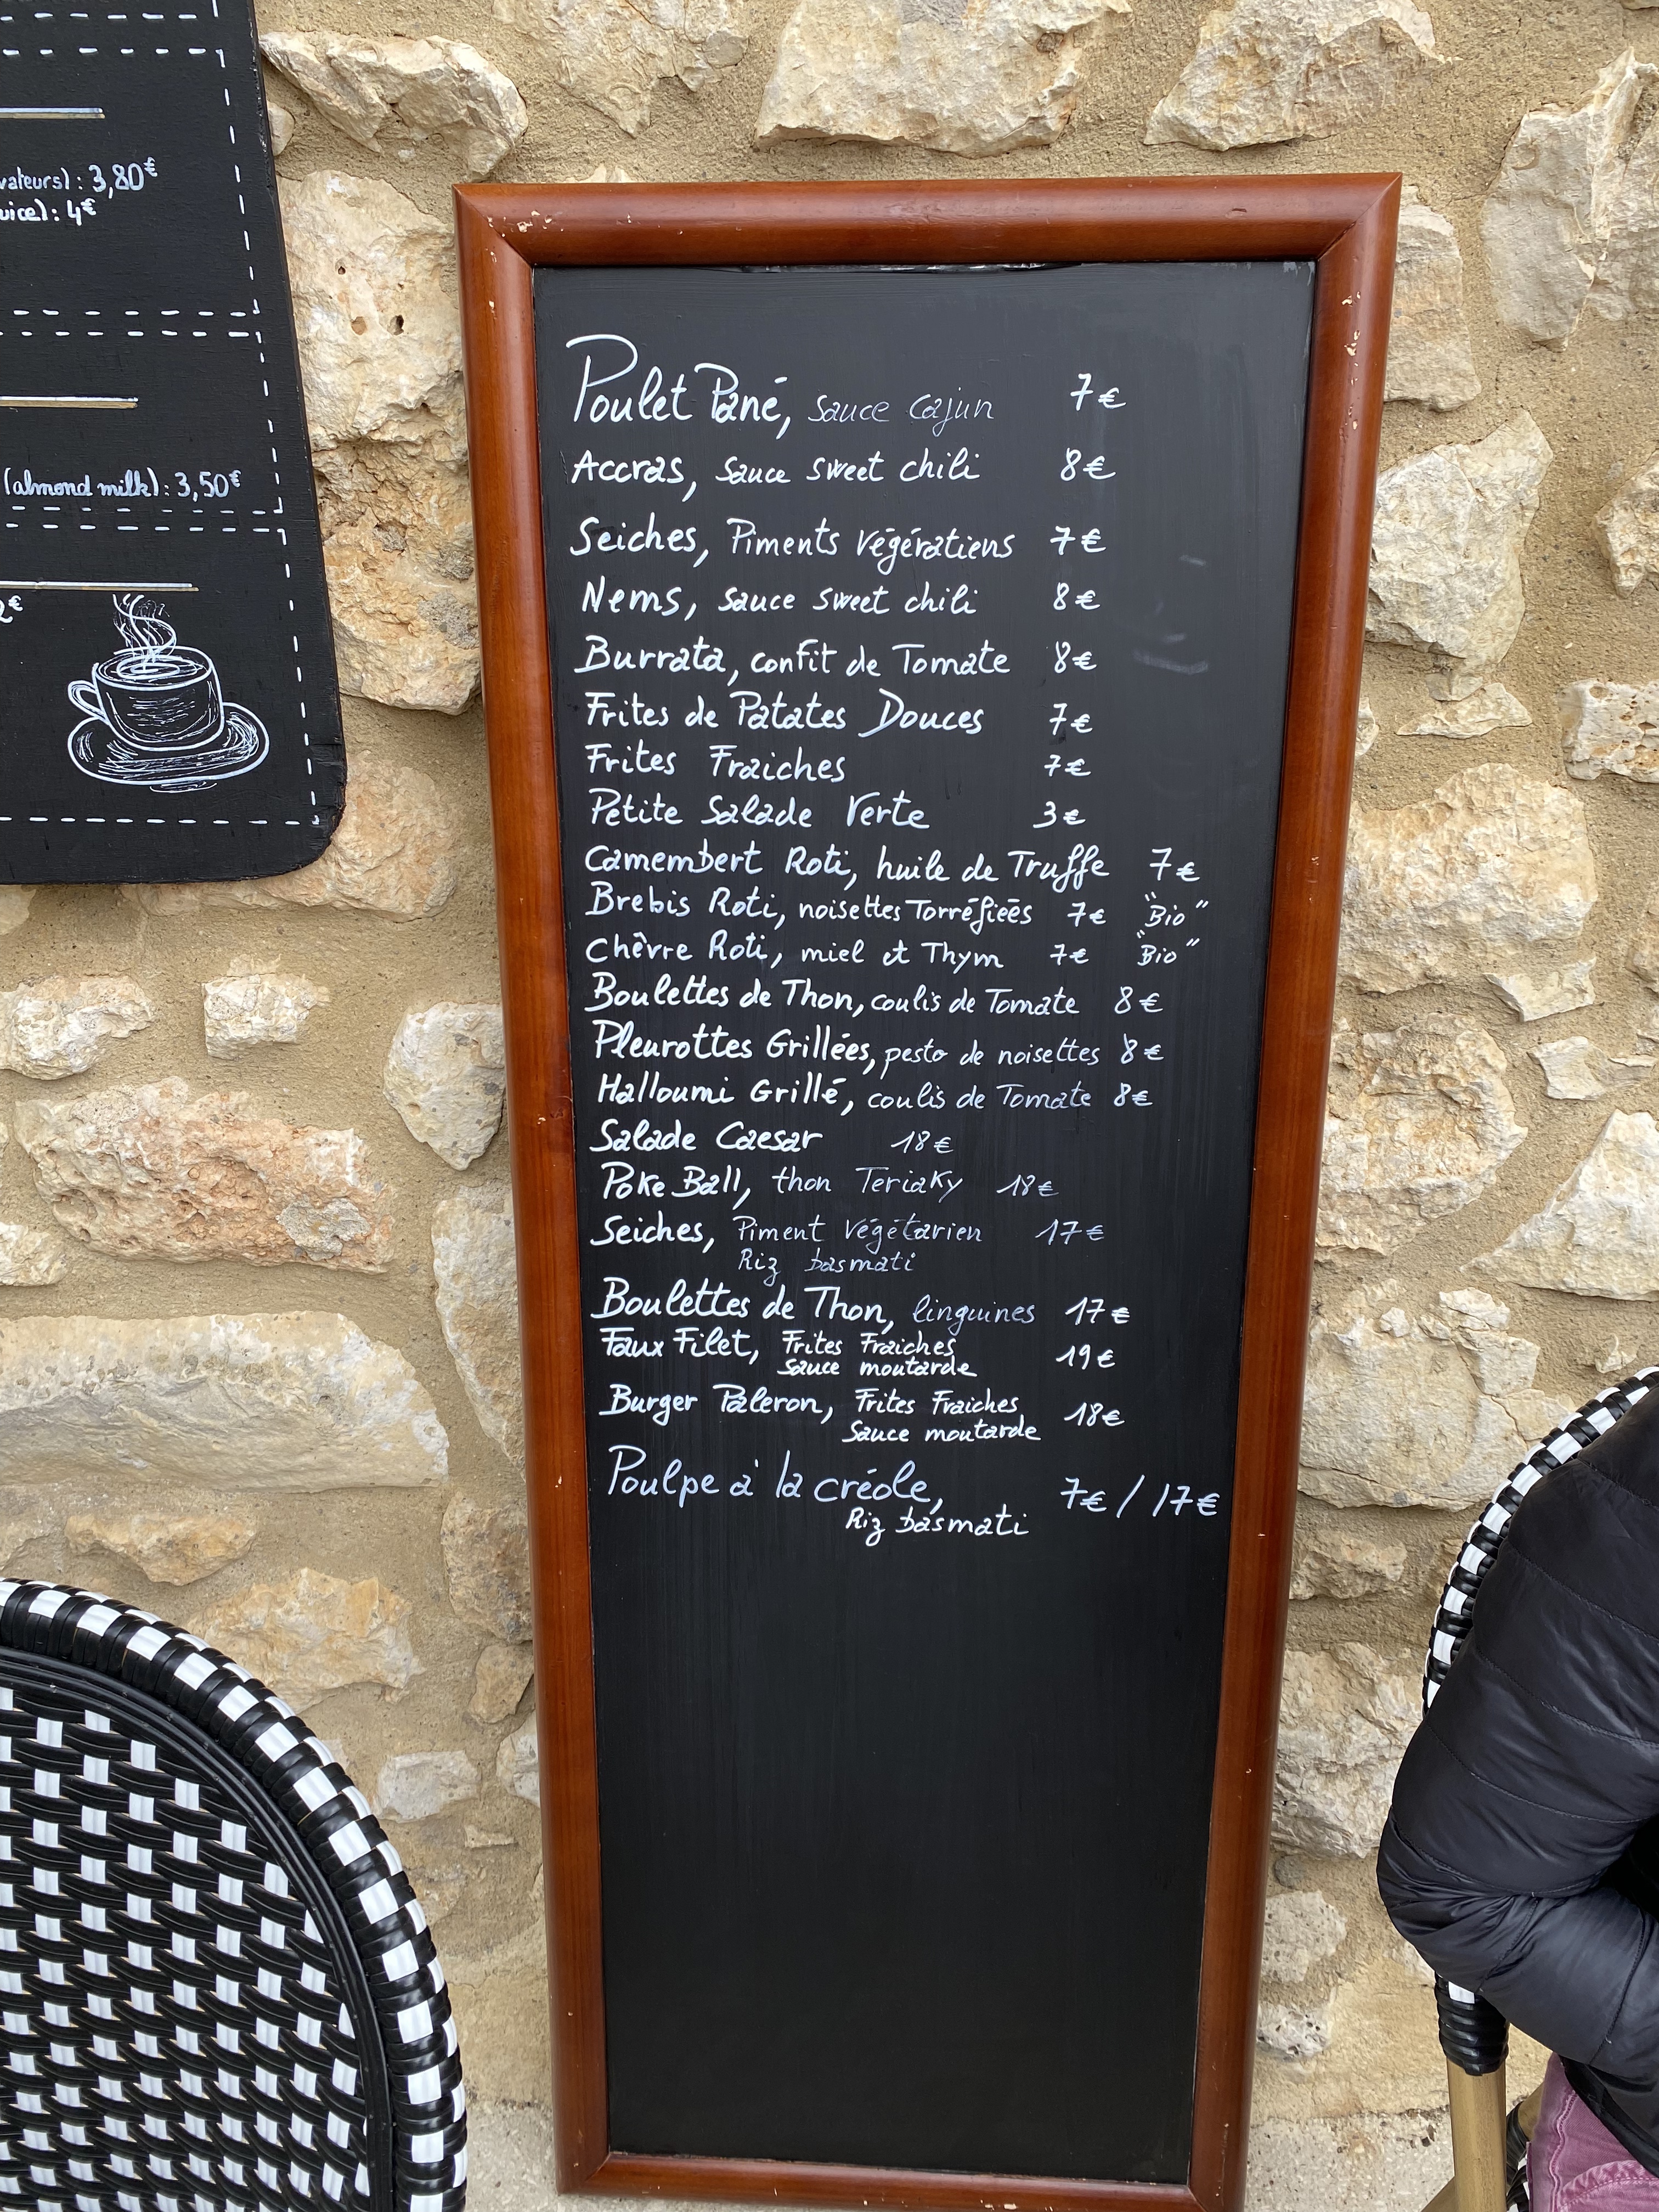 vateurs) : 3,80€
uice) : 4€
(almond milk) : 3,50€
2€
Poulet Pané, sauce cajun 7€
Accras, sauce sweet chili 8€
Seiches, Piments végératiens 7€
Nems, sauce sweet chili 8€
Burrata, confit de Tomate 8€
Frites de Patates Douces 7€
Frites Fraiches 7€
Petite Salade Verte 3€
Camembert Roti, huile de Truffe 7€
Brebis Roti, noisettes Torréfiées 7€ "Bio"
Chêvre Roti, miel et Thym 7€ "Bio"
Boulettes de Thon, coulis de Tomate 8€
Pleurottes Grillées, pesto de noisettes 8€
Halloumi Grillé, coulis de Tomate 8€
Salade Caesar 18€
Poke Ball, thon Teriaky 18€
Seiches, Piment végétarien 17€
Riz basmati
Boulettes de Thon, linguines 17€
Faux Filet, Frites Fraiches 19€
Sauce moutarde
Burger Paleron, Frites Fraiches 18€
Sauce moutarde
Poulpe à la créole, 7€ / 17€
Riz basmati